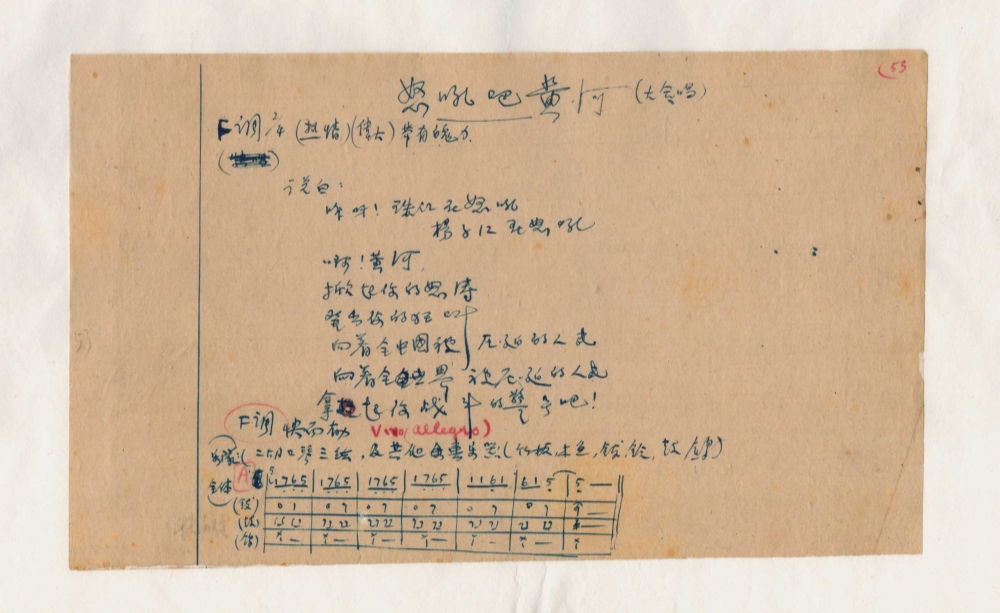 53
怒吼吧黄河 (大合唱)
F调 2/4 (热情)(伟大) 带有魄力
说白:
听呀!珠江在怒吼
揚子江在怒吼
啊!黄河,
掀起你的怒涛
發出你的狂叫
向着全中國被压迫的人民
向着全世界被压迫的人民
拿起你战斗的警号吧!
F调 快而 Vivo (allegro)
(二胡口琴三弦,及其他 (竹板,木鱼,鈸,铃,鼓,鑼)
全体 A 1765 1765 1765 1765 1161 615 5 —
(鈸) 0 7 0 7 0 7 0 7 0 7
(鼓)
(鑼)